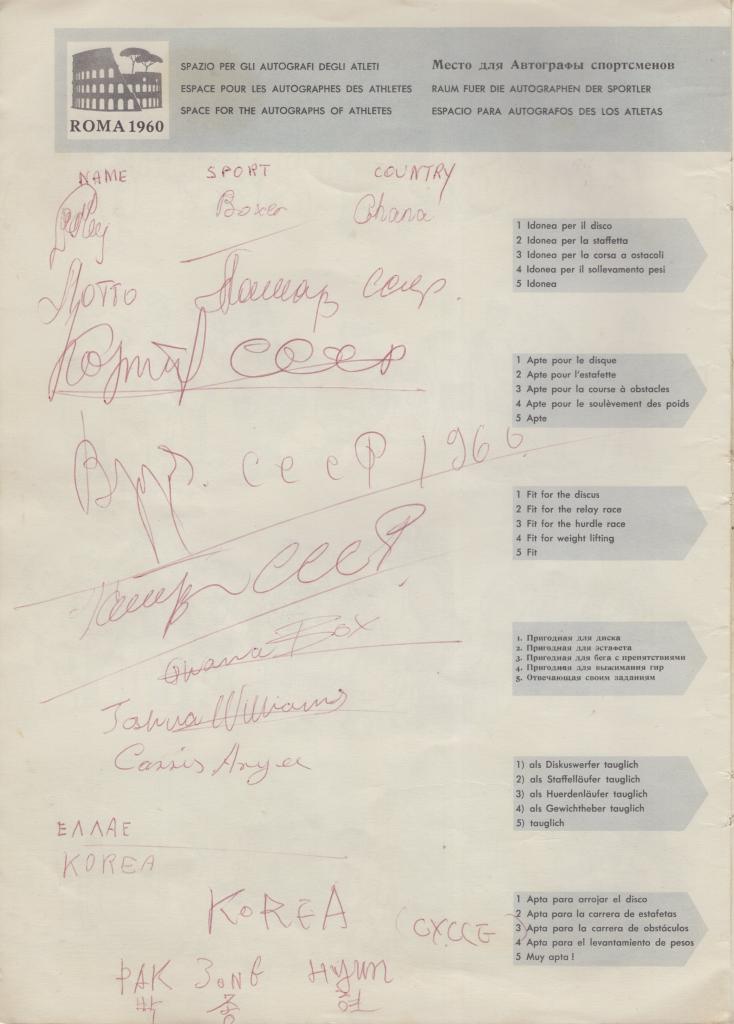 ROMA 1960
SPAZIO PER GLI AUTOGRAFI DEGLI ATLETI
ESPACE POUR LES AUTOGRAPHES DES ATHLETES
SPACE FOR THE AUTOGRAPHS OF ATHLETES
Место для Автографы спортсменов
RAUM FUER DIE AUTOGRAPHEN DER SPORTLER
ESPACIO PARA AUTOGRAFOS DES LOS ATLETAS
NAME SPORT COUNTRY
Boxer Ghana
Лотто
СССР
СССР 1960
СССР
Ghana Box
Joshua Williams
ΕΛΛΑΕ
KOREA
KOREA
PAK
박 종 현
1 Idonea per il disco
2 Idonea per la staffetta
3 Idonea per la corsa a ostacoli
4 Idonea per il sollevamento pesi
5 Idonea
1 Apte pour le disque
2 Apte pour l'estafette
3 Apte pour la course à obstacles
4 Apte pour le soulèvement des poids
5 Apte
1 Fit for the discus
2 Fit for the relay race
3 Fit for the hurdle race
4 Fit for weight lifting
5 Fit
1. Пригодная для диска
2. Пригодная для эстафета
3. Пригодная для бега с препятствиями
4. Пригодная для выжимания гир
5. Отвечающая своим заданиям
1) als Diskuswerfer tauglich
2) als Staffelläufer tauglich
3) als Huerdenläufer tauglich
4) als Gewichtheber tauglich
5) tauglich
1 Apta para arrojar el disco
2 Apta para la carrera de estafetas
3 Apta para la carrera de obstáculos
4 Apta para el levantamiento de pesos
5 Muy apta !